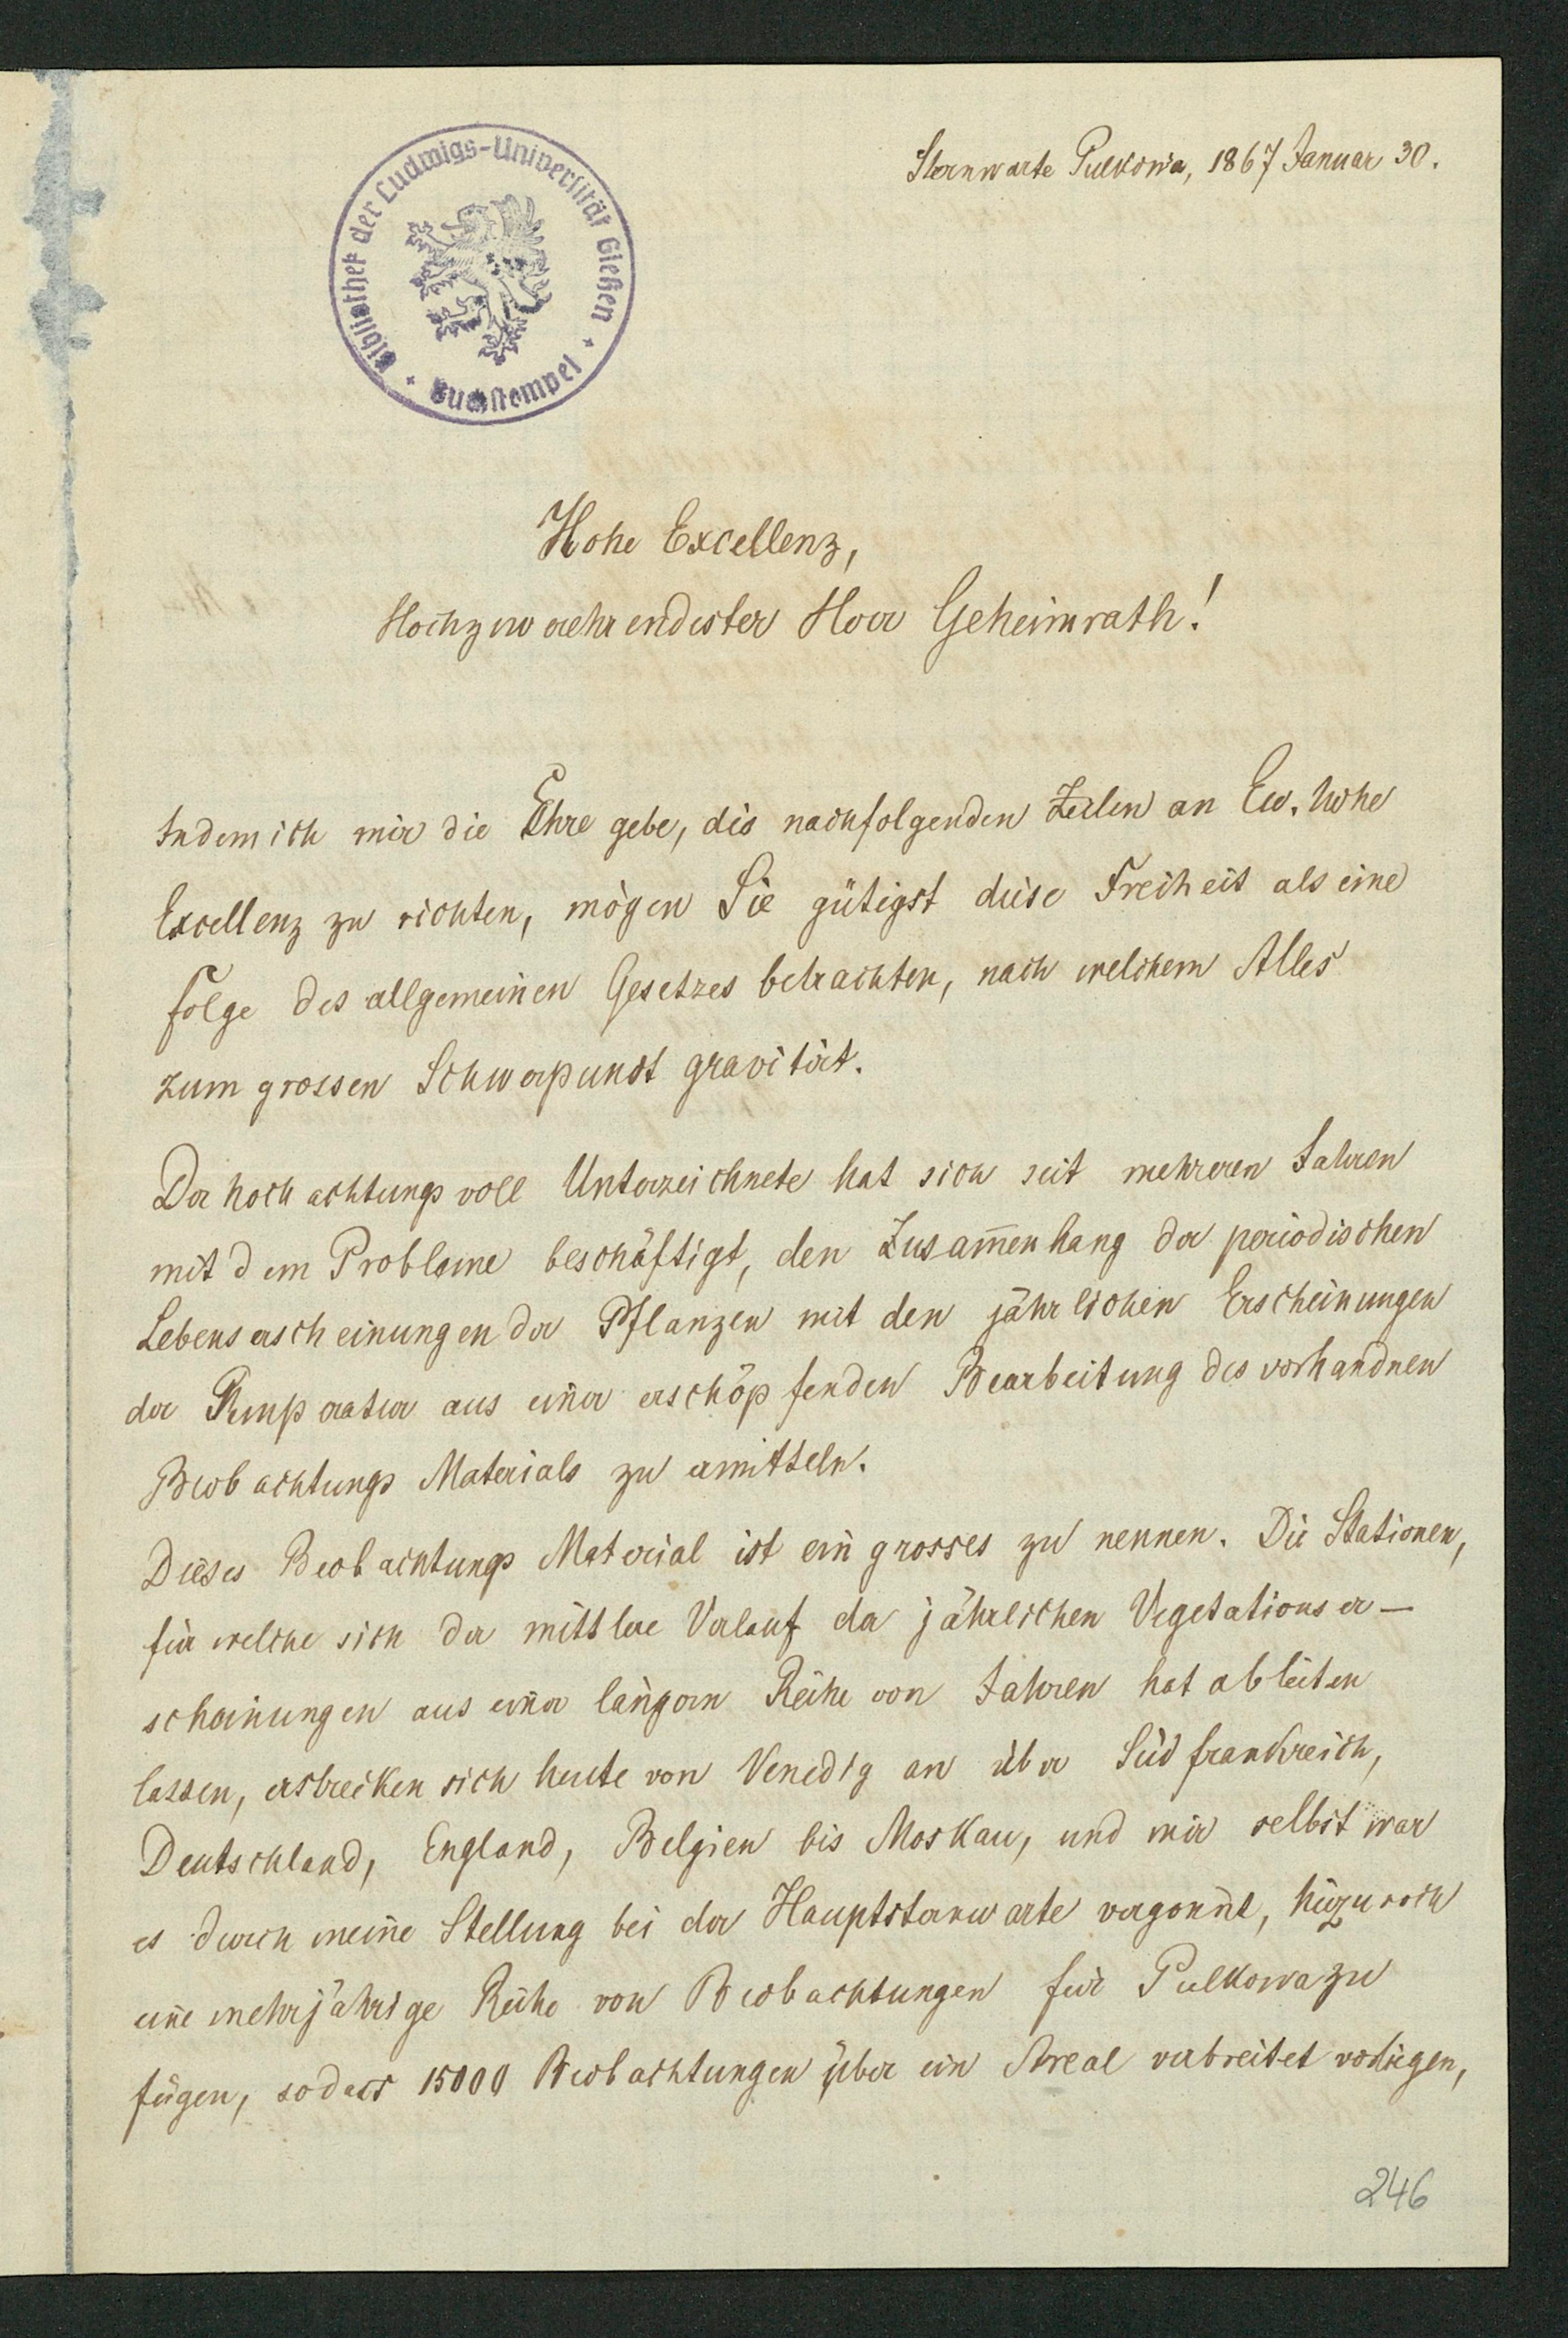 Sternwarte Pulkowa, 1867 Januar 30.
Bibliothek der Ludwigs-Universität Gießen
Buchstempel
Hohe Excellenz,
Hochzuverehrendester Herr Geheimrath!
Indem ich mir die Ehre gebe, die nachfolgenden Zeilen an Ew. hohe
Excellenz zu richten, mögen Sie gütigst diese Freiheit als eine
Folge des allgemeinen Gesetzes betrachten, nach welchem Alles
zum grossen Schwerpunct gravitirt.
Der hochachtungsvoll Unterzeichnete hat sich seit mehreren Jahren
mit dem Probleme beschäftigt, den Zusam̄enhang der periodischen
Lebenserscheinungen der Pflanzen mit den jährlichen Erscheinungen
der Temperatur aus einer erschöpfenden Bearbeitung des vorhandnen
Beobachtungs Materials zu ermitteln.
Dieses Beobachtungs Material ist ein grosses zu nennen. Die Stationen,
für welche sich der mittlere Verlauf der jährlichen Vegetationser-
scheinungen aus einer längern Reihe von Jahren hat ableiten
lassen, erstrecken sich heute von Venedig an über Südfrankreich,
Deutschland, England, Belgien bis Moskau, und mir selbst war
es durch meine Stellung bei der Hauptsternwarte vergönnt, hiezu noch
eine mehrjährige Reihe von Beobachtungen für Pulkowa zu
fügen, sodass 15000 Beobachtungen über ein Areal verbreitet vorliegen,
246